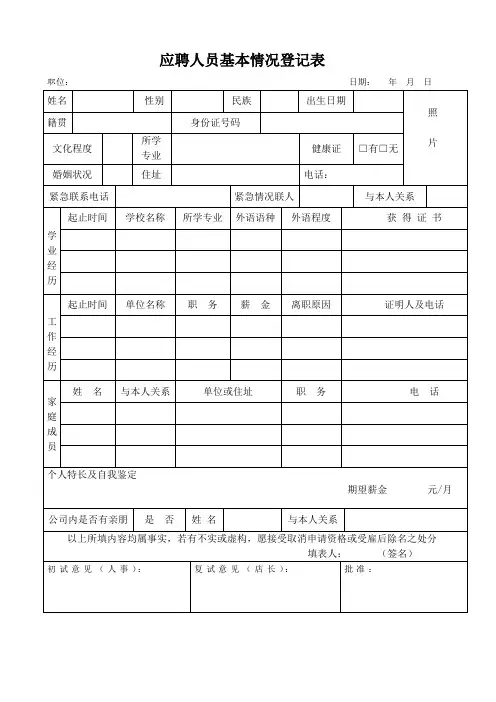 应聘人员基本情况登记表
职位： 日期： 年 月 日
姓名 性别 民族 出生日期 照片
籍贯 身份证号码
文化程度 所学专业 健康证 □有□无
婚姻状况 住址 电话：
紧急联系电话 紧急情况联人 与本人关系
学业经历
起止时间 学校名称 所学专业 外语语种 外语程度 获 得 证 书
工作经历
起止时间 单位名称 职 务 薪 金 离职原因 证明人及电话
家庭成员
姓 名 与本人关系 单位或住址 职 务 电 话
个人特长及自我鉴定
期望薪金 元/月
公司内是否有亲朋 是 否 姓 名 与本人关系
以上所填内容均属事实，若有不实或虚构，愿接受取消申请资格或受雇后除名之处分
填表人： （签名）
初 试 意 见 （ 人 事 ）： 复 试 意 见 （ 店 长 ）： 批 准 ：